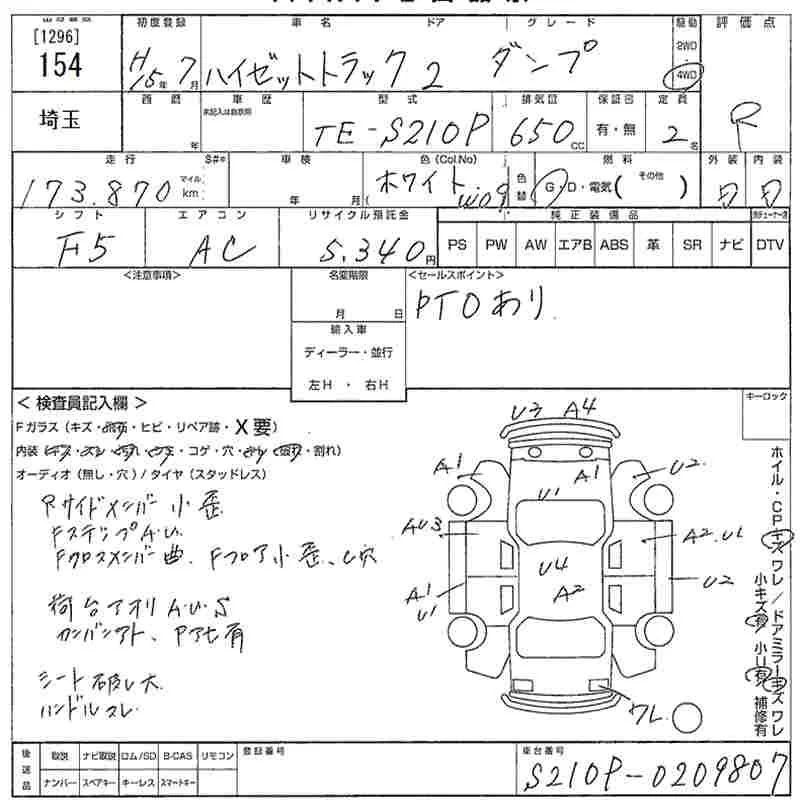 [1296]
154
埼玉
初度登録 車名 ドア グレード 駆動 評価点
H15年7月 ハイゼットトラック 2 ダンプ 2WD 4WD
西暦 車歴 型式 排気量 保証書 定員
年 未記入は自家用 TE-S210P 650cc 有・無 2名 R
走行 S#* 車検 色(Col.No) 色替 燃料 外装 内装
173.870 マイル km 年 月 ホワイト( W09 G・D・電気( その他 ) D D
シフト エアコン リサイクル預託金 純正装備品
F5 AC 5,340円 PS PW AW エアB ABS 革 SR ナビ DTV
<注意事項> 名変期限 <セールスポイント>
月 日 PTOあり
輸入車
ディーラー・並行
左H ・ 右H
< 検査員記入欄 >
Fガラス (キズ・飛石・ヒビ・リペア跡・X要)
内装 (キズ・スレ・汚れ・ヤケ・コゲ・穴・きれ・破れ・割れ)
オーディオ (無し・穴) / タイヤ (スタッドレス)
Rサイドメンバー小歪
FステップA・U.
Fクロスメンバー曲. Fフロア小歪、し穴
荷台アオリA.U.S
カンバンアト、Pアセ有
シート破レ大
ハンドルスレ
U3 A4
A1 A1 U2
U1
AU3 A2 U1
U4
A1 U1 A2 U2
ワレ
キーロック
ホイル・CPキズワレ/ドアミラーキズワレ
小キズ有 小U有 補修有
後送品 取説 ナビ取説 ロム/SD B-CAS リモコン 登録番号 車台番号
ナンバー スペアキー キーレス スマートキー S210P-0209807